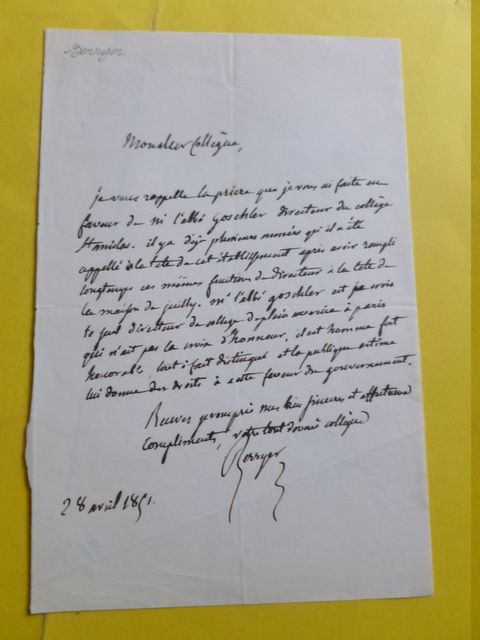 Berryer
Monsieur Collègue,
je vous rappelle la priere que je vous ai faite en
faveur de M l'abbé Goschler directeur du collège
Stanislas. il y a déjà plusieurs années qu'il a été
appellé à la tete de cet établissement après avoir rempli
longtemps ces mêmes fonctions de directeur à la tete de
la maison de juilly. Mr l'abbé goschler est je crois
le seul directeur de college de plein exercice à paris
qui n'ait pas la croix d'honneur, il est homme fort
honorable tout à fait distingué et la publique estime
lui donne des droits à cette faveur du gouvernement.
Recevez je vous prie mes bien sinceres et affectueux
compliments, votre tout dévoué collègue
Berryer
28 avril 1851.